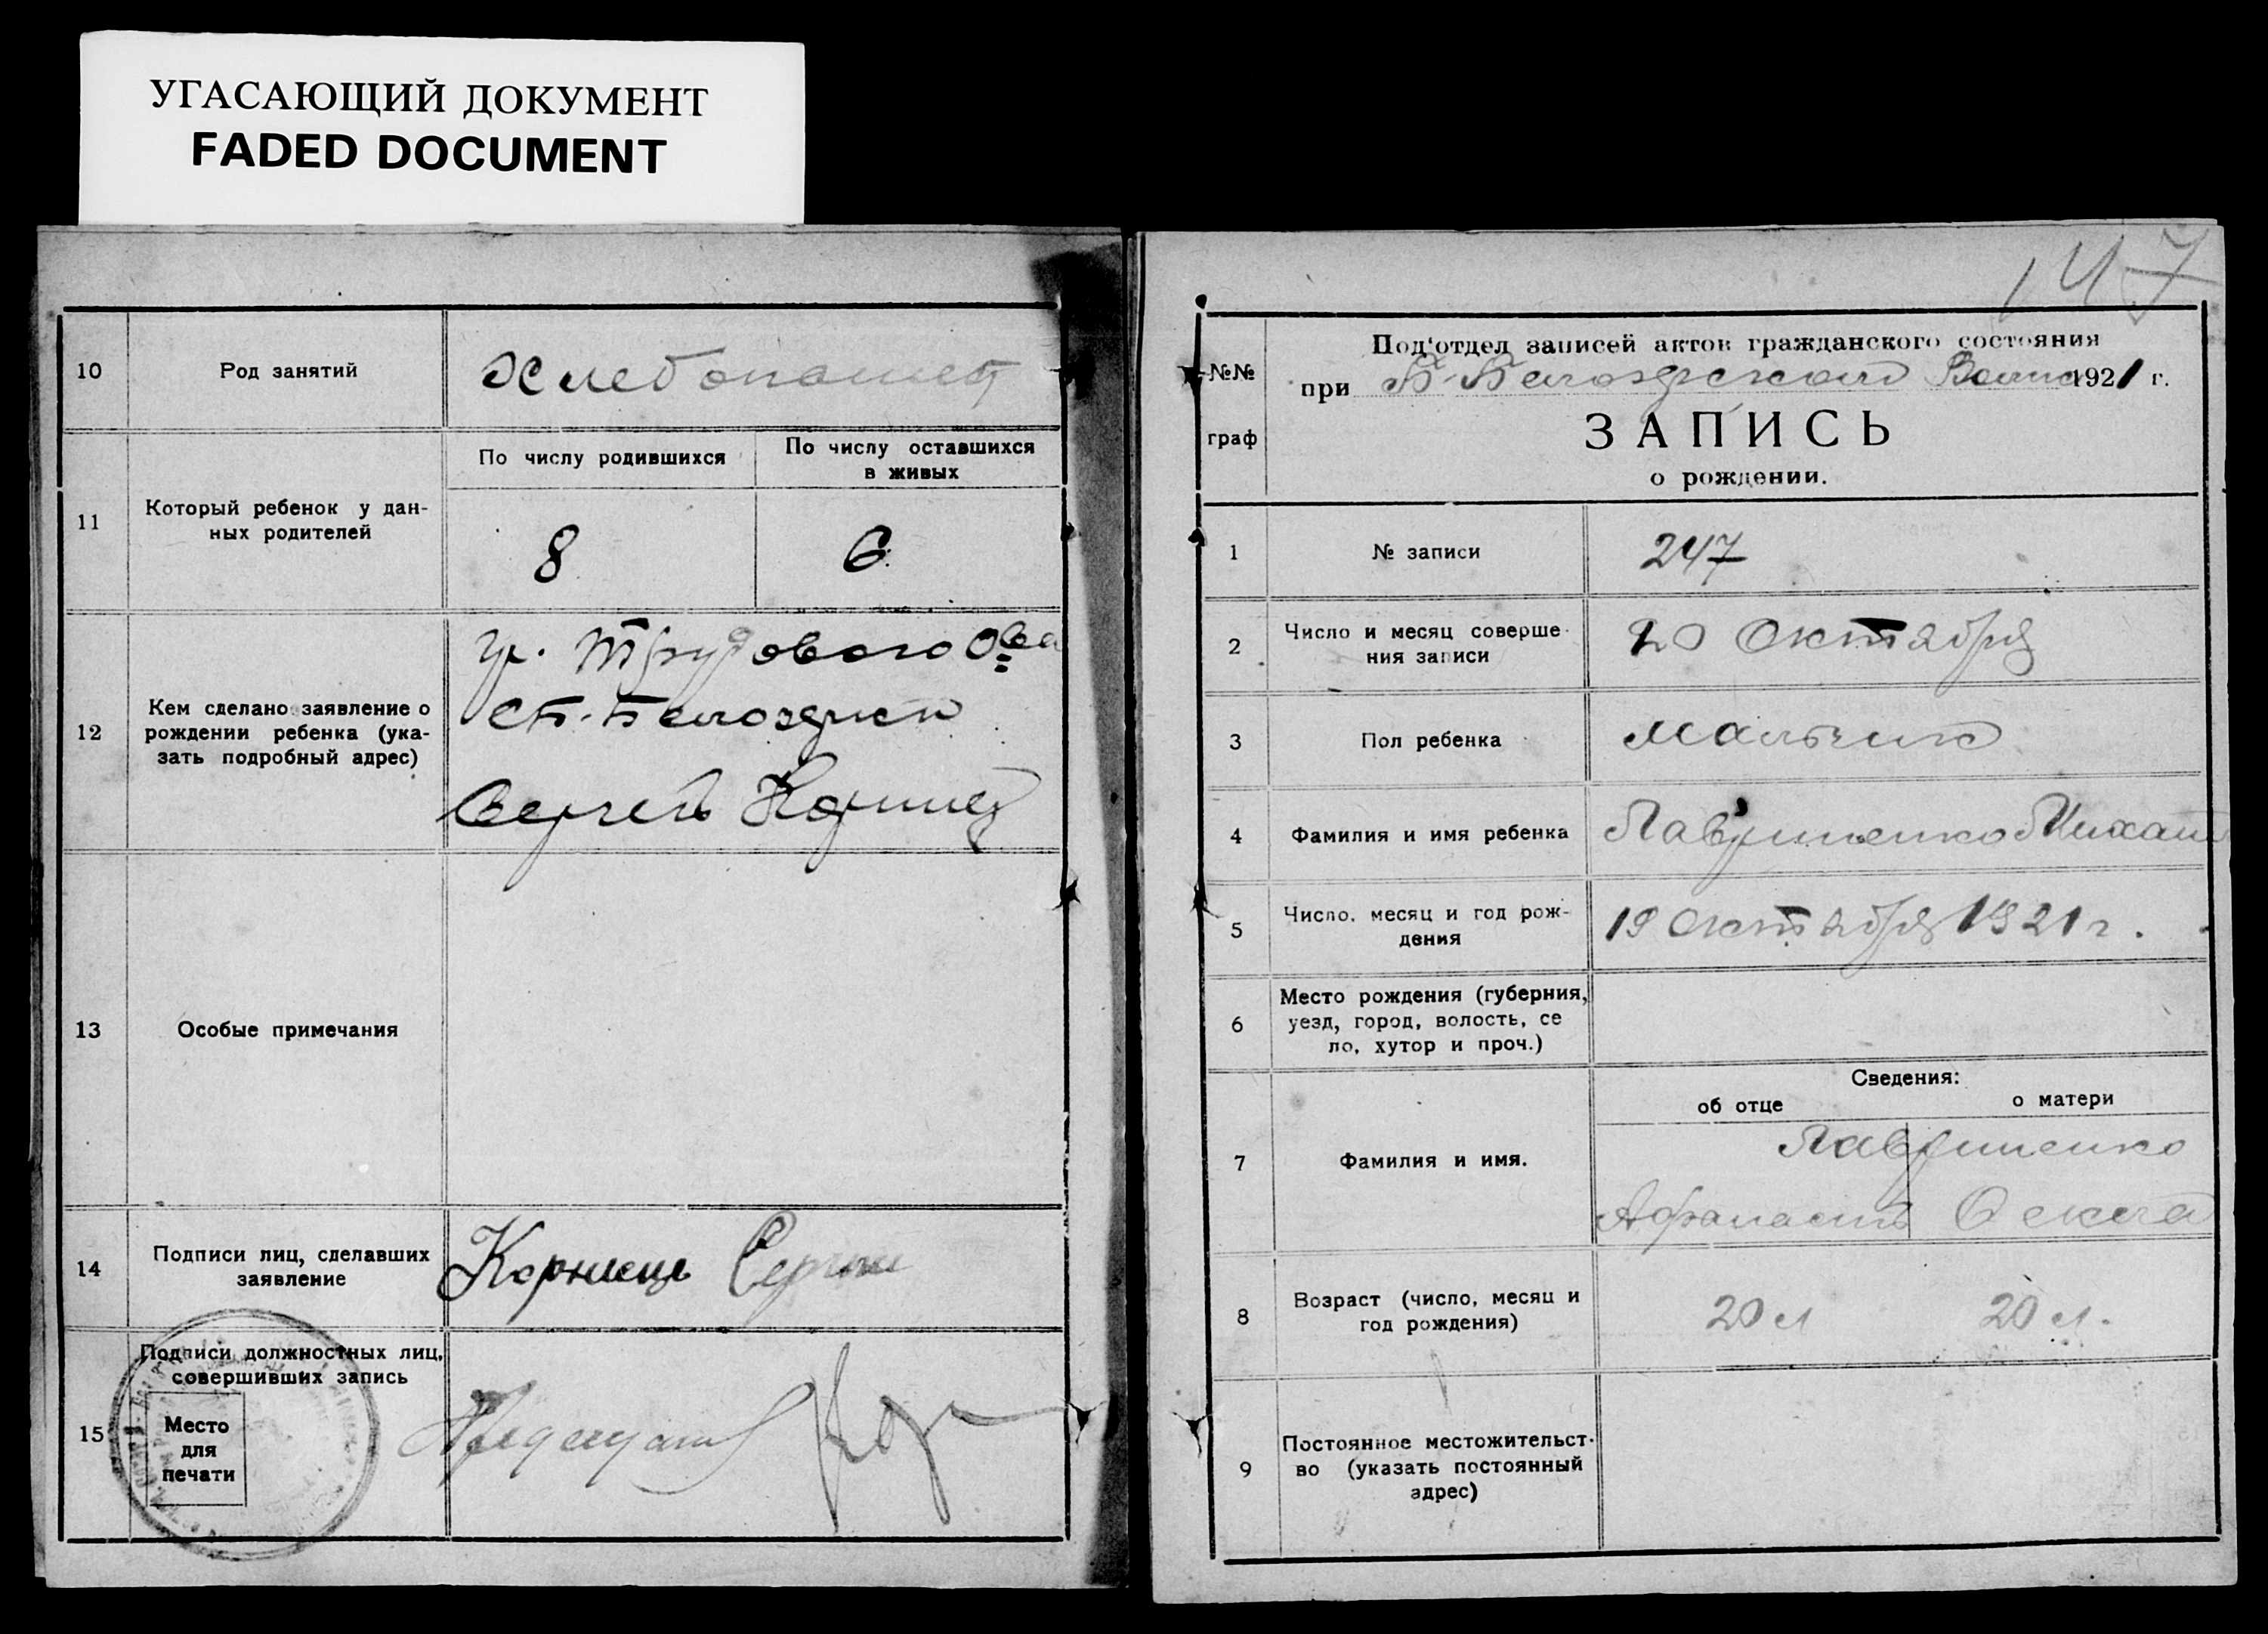 УГАСАЮЩИЙ ДОКУМЕНТ
FADED DOCUMENT
10
Род занятий
Хлебопашец
11
Который ребенок у дан-
ных родителей
По числу родившихся
По числу оставшихся
в живых
8
6
12
Кем сделано заявление о
рождении ребенка (ука-
зать подробный адрес)
гр. Трудового О-ва
Сергей Корниец
13
Особые примечания
14
Подписи лиц, сделавших
заявление
Корниец Сергей
15
Подписи должностных лиц,
совершивших запись
Место
для
печати
147
№№
граф
Под'отдел записей актов гражданского состояния
при Б-Белозерском 1921 г.
ЗАПИСЬ
о рождении.
1
№ записи
247
2
Число и месяц соверше-
ния записи
20 Октября
3
Пол ребенка
мальчик
4
Фамилия и имя ребенка
Лавриненко Михаил
5
Число, месяц и год рож-
дения
19 Октября 1921 г.
6
Место рождения (губерния,
уезд, город, волость, се
ло, хутор и проч.)
Сведения:
об отце
о матери
7
Фамилия и имя.
Лавриненко
Афанасий
8
Возраст (число, месяц и
год рождения)
20 л
20 л.
9
Постоянное местожительст-
во (указать постоянный
адрес)